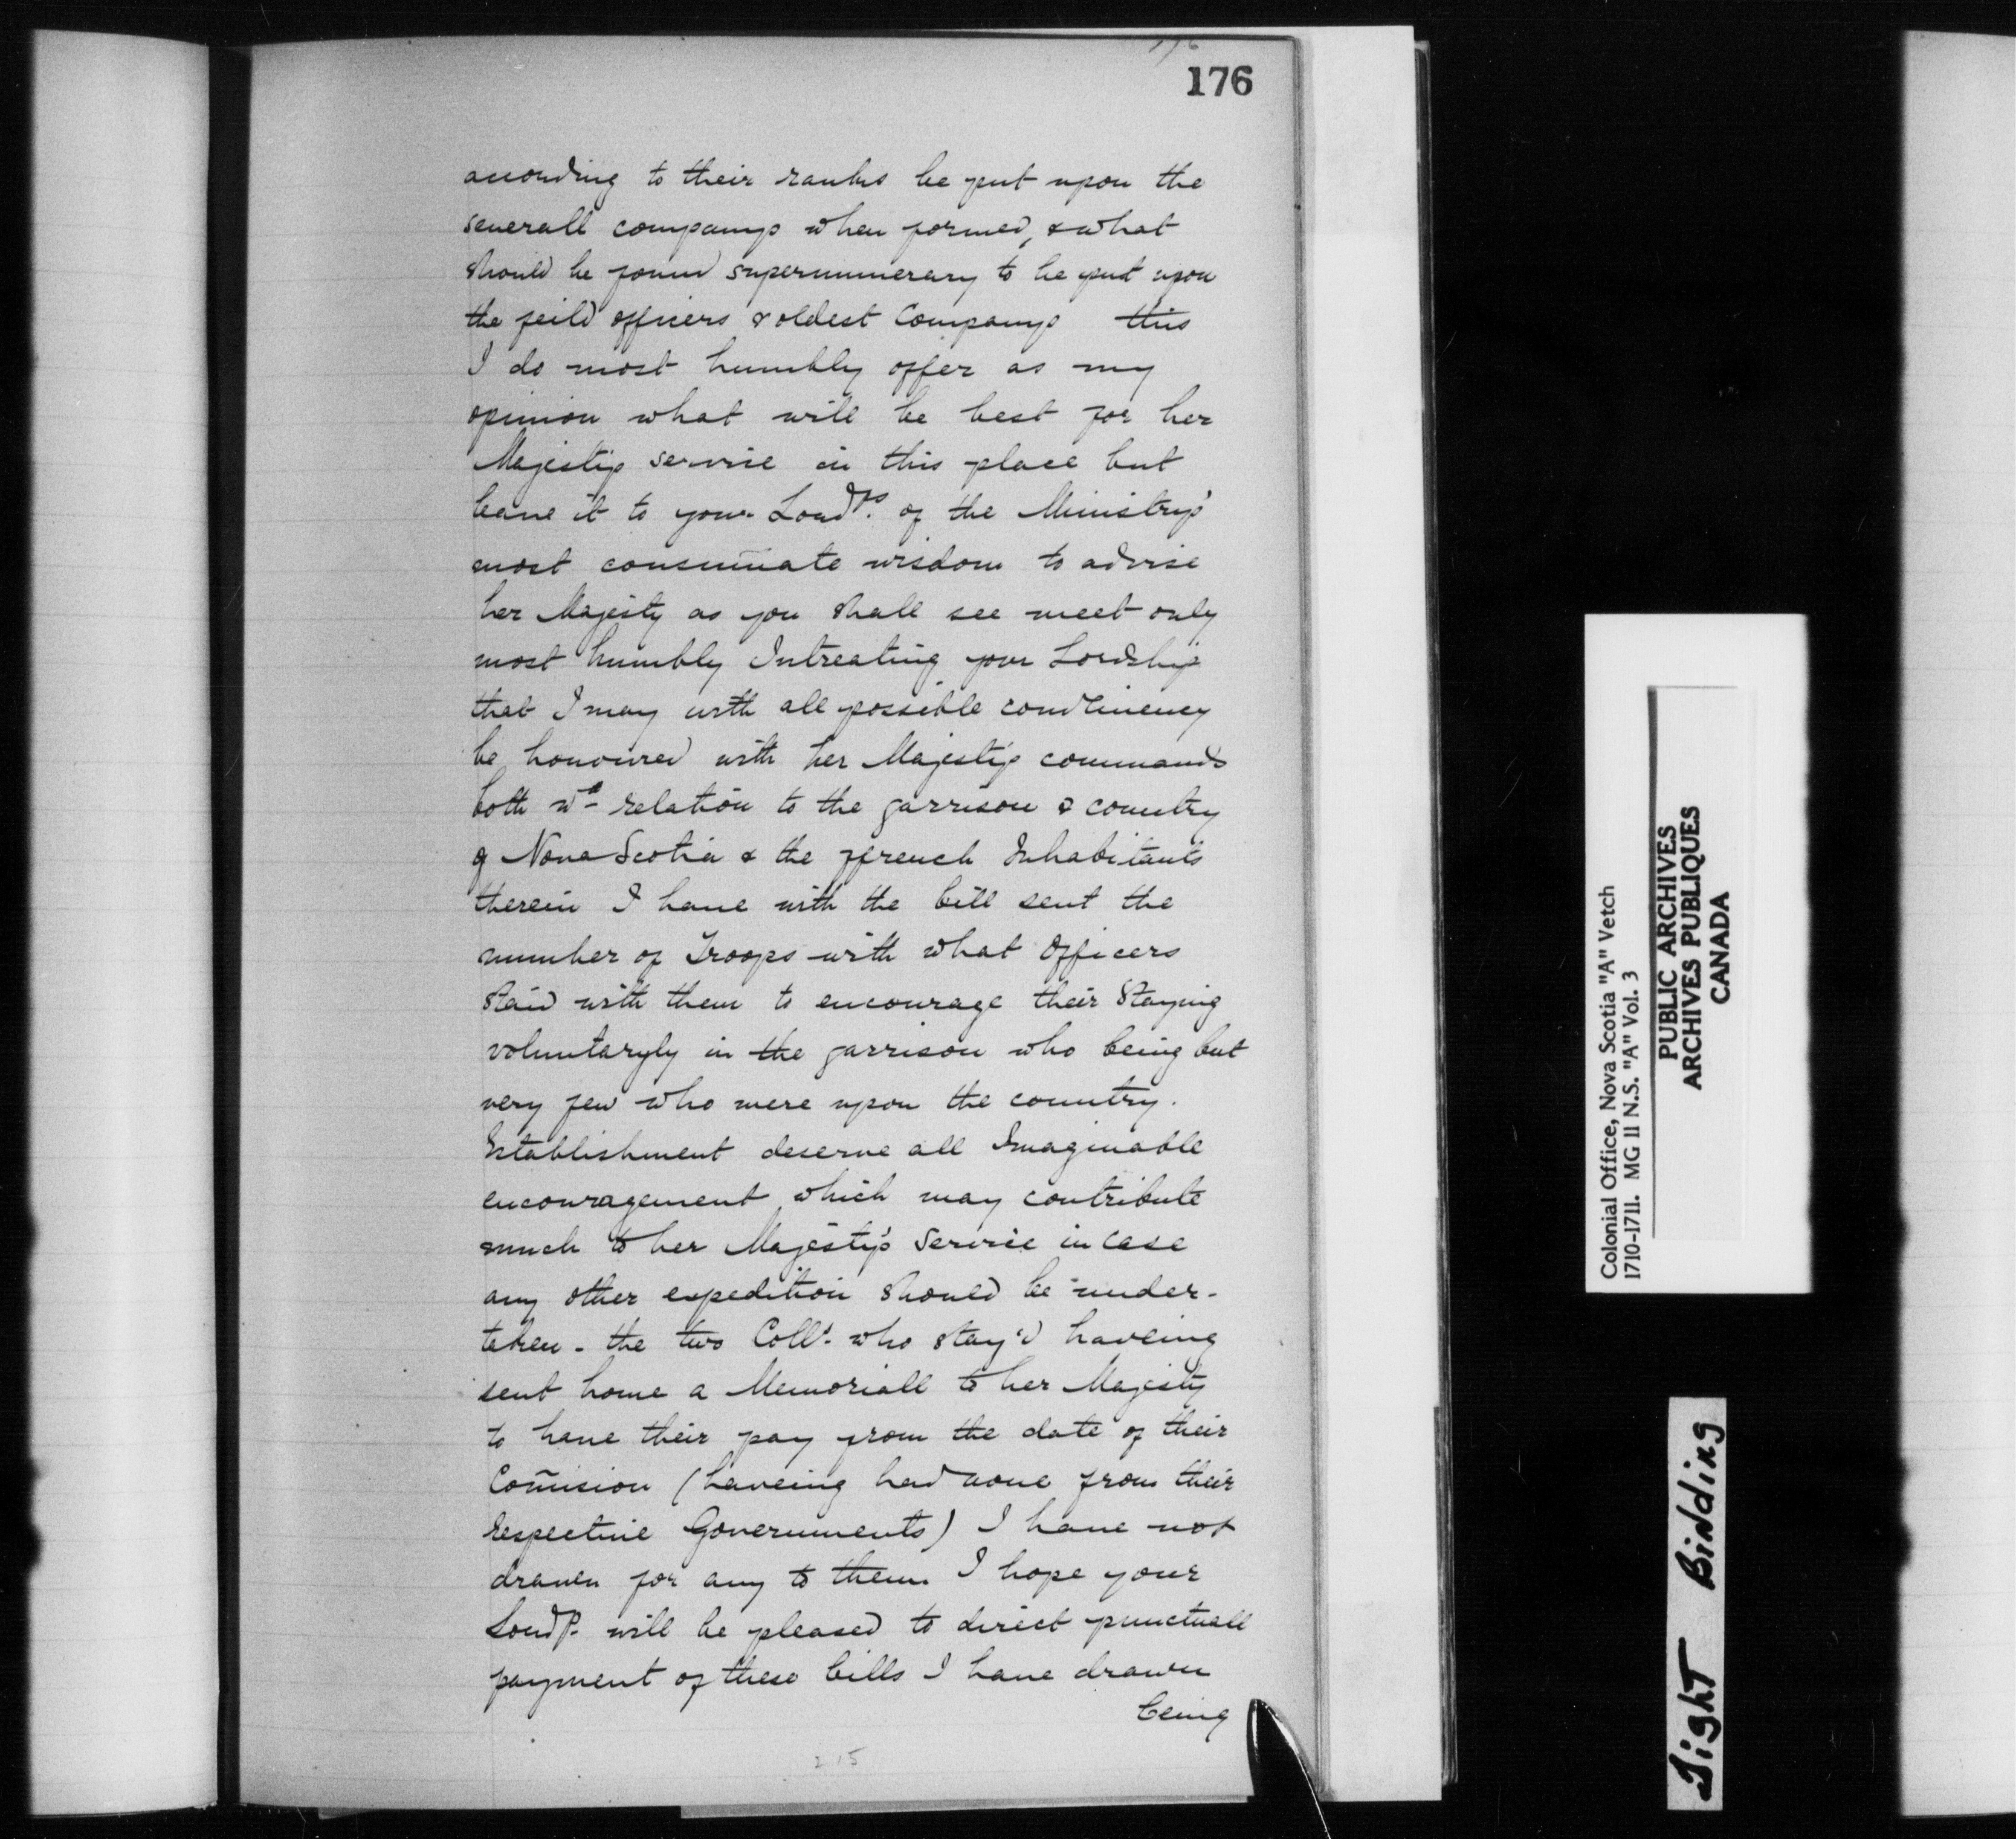 176
176
according to their ranks be put upon the
severall companys when formed, & what
should be found supernumerary to be put upon
the feild officers & oldest Companys this
I do most humbly offer as my
opinion what will be best for her
Majestys service in this place but
leave it to your Lordps. of the Ministrys
most consum̄ate wisdom to advise
her Majesty as you shall see meet only
most humbly Intreating your Lordship
that I may with all possible
be honoured with her Majestys commands
both wt relation to the garrison & country
of Nova Scotia & the ffrench Inhabitants
therein I have with the bill sent the
number of Troops with what Officers
staid with them to encourage their Staying
voluntaryly in the garrison who being but
very few who were upon the country.
Establishment deserve all Imaginable
encouragement which may contribute
much to her Majesty's Service in case
any other expedition should be under-
taken - the two Colls. who stay'd haveing
sent home a Memoriall to her Majesty
to have their pay from the date of their
Com̄ision (haveing had none from their
respective Governments) I have not
drawn for any to them I hope your
Lordp. will be pleased to direct punctuall
payment of these bills I have drawn
being
215
Colonial Office, Nova Scotia "A" Vetch
1710-1711. MG 11 N.S. "A" Vol. 3
PUBLIC ARCHIVES
ARCHIVES PUBLIQUES
CANADA
Tight Binding